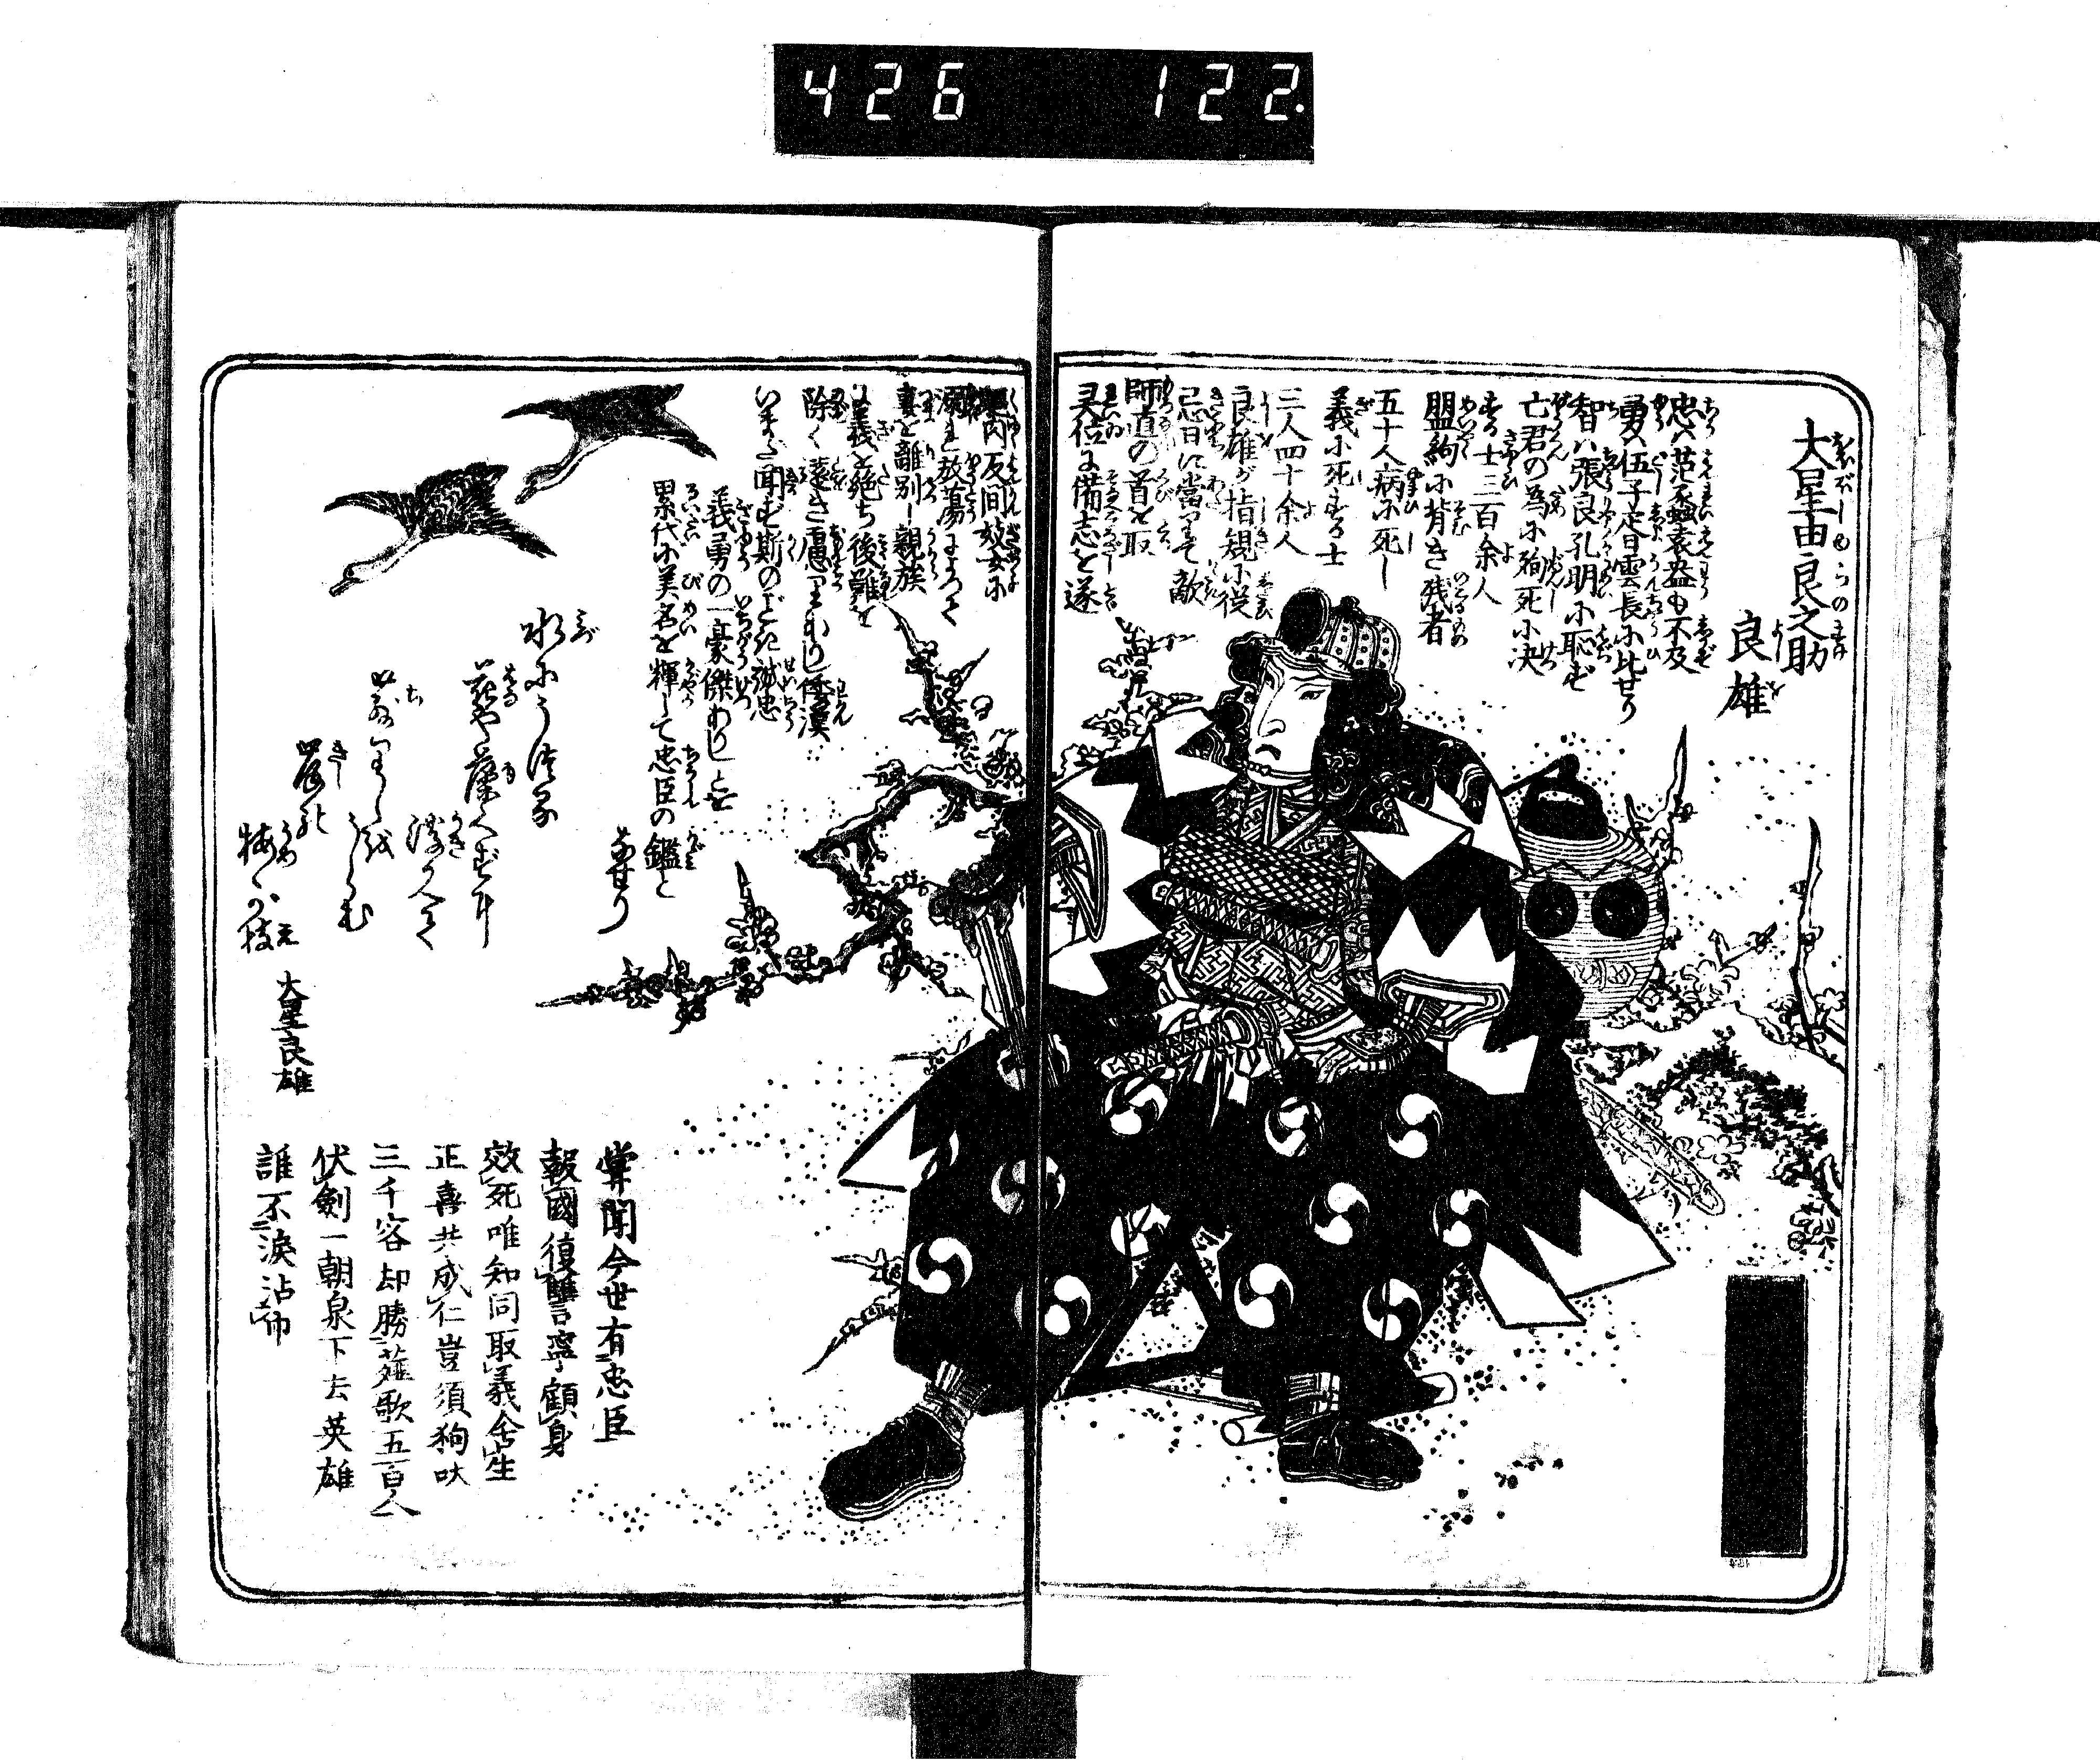 426 122.
大星由良之助
良雄
忠ハ范蠡袁盎も不及
勇ハ伍子胥雲長小比せり
智ハ張良孔明小恥ず
亡君の為小殉死小决
する士三百余人
盟約小背き残者
五十人病小死し
義小死する士
三人四十余人
良雄が指䂓小從
忌日に當りて敵
師直の首を取
灵位に備志を遂
反間妓女小
溺れ放蕩によつて
妻を離別し親族
に義を絶ち後難を
除く遠き慮りあり倭漢
いまだ聞ず斯のごとき誠忠
義勇の一豪傑ありしことを
累代小美名を輝して忠臣の鑑と
なせり
大星良雄
甞聞今世有忠臣
報國復讐寧顧身
效死唯知同取義舎生
正喜共成仁豈須狗吠
三千客却勝薤歌五百人
伏劍一朝泉下去英雄
誰不涙沾巾